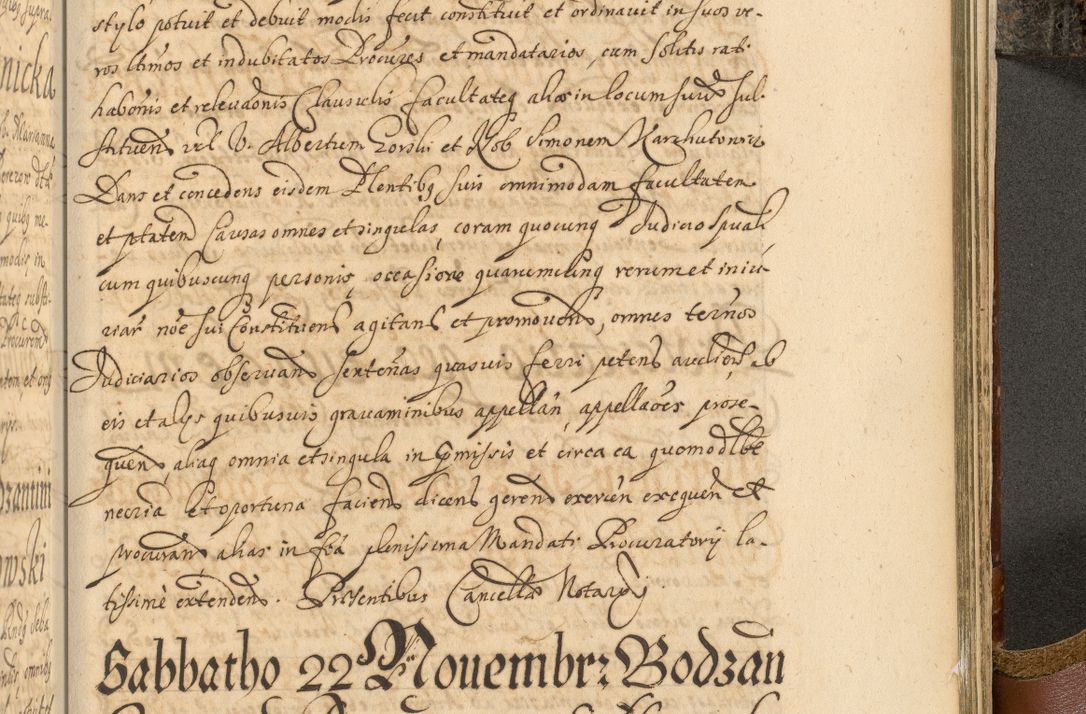 stylo potuit et debuit modis fecit constituit et ordinavit in suos ve-
ros ltimos et indubitatos Procures et mandatarios, cum solitis rati
habonis et relevaonis Clausulis facultateq alios in locum suū sub-
stituen vel V. Albertum Gorski et Nob Simonem Warzhutowicz
Dans et concedens eisdem Plentibq suis omnimodam facultatem
et ptatem Causas omnes et singulas, coram quocunq Judicio spuali
cum quibuscunq personis, occasione quarumcunq rerum et iniu-
riar noe sui Constituens agitan et promoven, omnes ternos
Judiciarios observan sententias quasvis ferri peten
eis et alys quibusvis gravaminibus appellan, appellaoes prose-
quen, aliaq omnia et singula in pmissis et circa ea quomodlbt
necria et oportuna facien dicen geren exercen exequen et
procuran, alias in foa plenissima Mandati Procuratorij la-
tissime extenden. Prsentibus Cancellae Notarys
Sabbatho 22 Nouembr: Bodzan
nicka
Marianna
Procuren
dzantini
wski